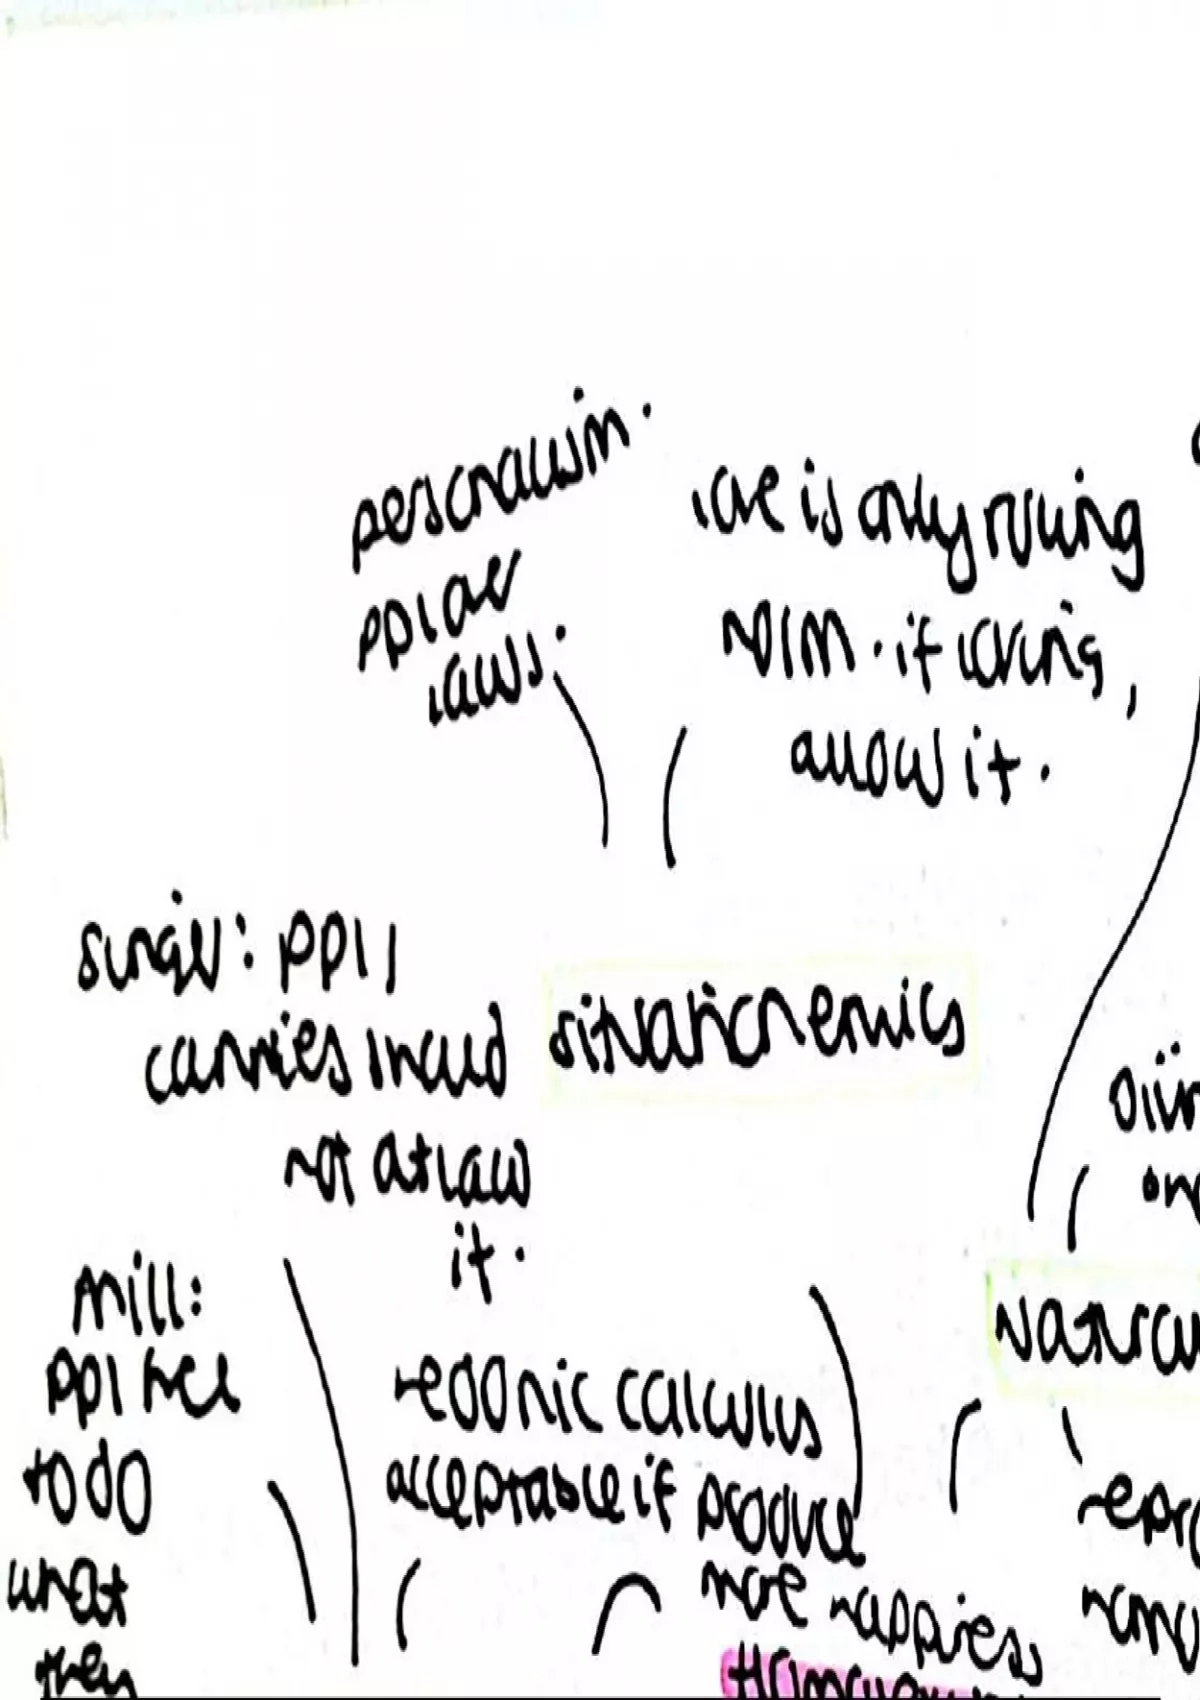 personalism.
ppl over
laws.
love is only ruling
norm. if loving,
allow it.
singer: ppl
carries incud
not at law
it.
situation ethics
mill:
ppl free
to do
what
they
hedonic calculus
acceptable if produce
more happiness
natural
repro
homo